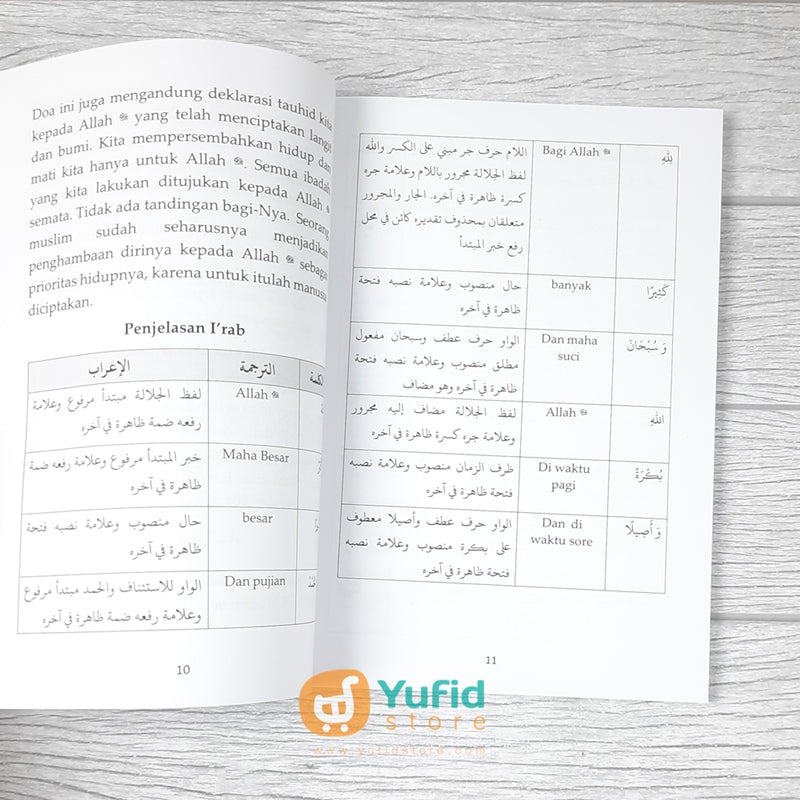 Doa ini juga mengandung deklarasi tauhid kita
kepada Allah ﷻ yang telah menciptakan langit
dan bumi. Kita mempersembahkan hidup dan
mati kita hanya untuk Allah ﷻ. Semua ibadah
yang kita lakukan ditujukan kepada Allah ﷻ
semata. Tidak ada tandingan bagi-Nya. Seorang
muslim sudah seharusnya menjadikan
penghambaan dirinya kepada Allah ﷻ sebagai
prioritas hidupnya, karena untuk itulah manusia
diciptakan.
Penjelasan I'rab
الكلمة الترجمة الإعراب
Allah ﷻ لفظ الجلالة مبتدأ مرفوع وعلامة
رفعه ضمة ظاهرة في آخره
Maha Besar خبر المبتدأ مرفوع وعلامة رفعه ضمة
ظاهرة في آخره
besar حال منصوب وعلامة نصبه فتحة
ظاهرة في آخره
Dan pujian الواو للاستئناف والحمد مبتدأ مرفوع
وعلامة رفعه ضمة ظاهرة في آخره
10
لِلهِ Bagi Allah ﷻ اللام حرف جر مبني على الكسر والله
لفظ الجلالة مجرور باللام وعلامة جره
كسرة ظاهرة في آخره. الجار والمجرور
متعلقان بمحذوف تقديره كائن في محل
رفع خبر المبتدأ
كَثِيرًا banyak حال منصوب وعلامة نصبه فتحة
ظاهرة في آخره
وَ سُبْحَانَ Dan maha الواو حرف عطف وسبحان مفعول
suci مطلق منصوب وعلامة نصبه فتحة
ظاهرة في آخره وهو مضاف
اللهِ Allah ﷻ لفظ الجلالة مضاف إليه مجرور
وعلامة جره كسرة ظاهرة في آخره
بُكْرَةً Di waktu ظرف الزمان منصوب وعلامة نصبه
pagi فتحة ظاهرة في آخره
وَ أَصِيلًا Dan di الواو حرف عطف وأصيلا معطوف
waktu sore على بكرة منصوب وعلامة نصبه
فتحة ظاهرة في آخره
11
Yufid
store
www.yufidstore.com